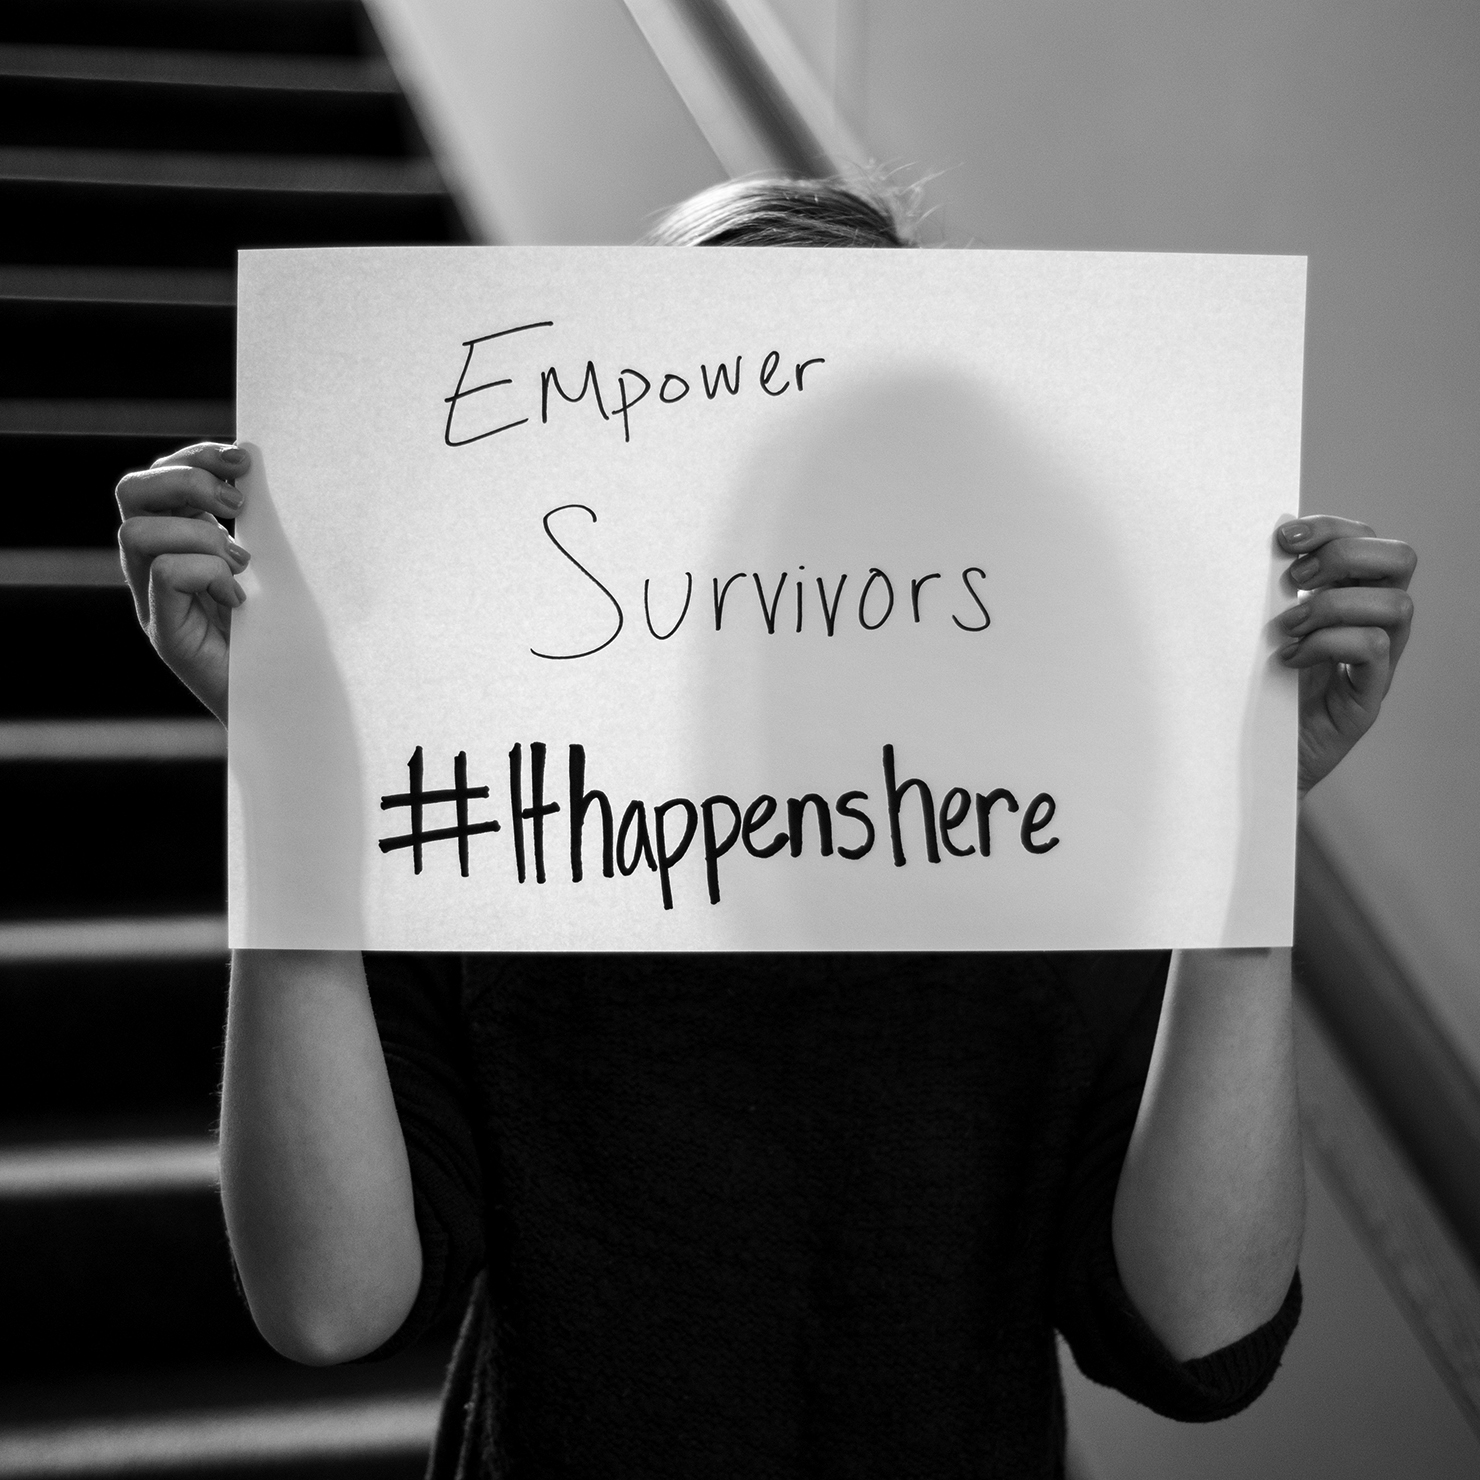 Empower
Survivors
#Ithappenshere